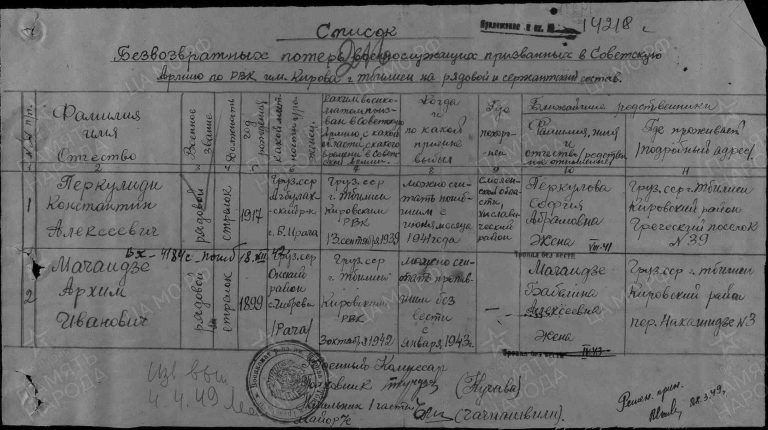 Список
Приложение к вх. № 14218 с
Безвозвратных потерь военнослужащих призванных в Советскую
Армию по РВК им. Кирова г. Тбилиси на рядовой и сержантский состав.
№№ п/п.
Фамилия
имя
Отчество
Военное звание
Должность
год рождения
какой местности уроженец
Каким военкоматом призван в Советскую армию, с какой области, с какого времени в Советской Армии
Когда
и
по какой
причине
выбыл
Где похоронен
Ближайшие родственники
Фамилия, имя
и
отчество (родствен.
на отношение)
Где проживает
/подробный адрес/
1 2 3 4 5 7 8 9 10 11
1
Перкулиди
Константин
Алексеевич
рядовой
стрелок
1917
Груз.сср
г. В. Ирага
Груз.сср
г. Тбилиси
Кировский
РВК
13 сентября 1939
можно считать погибшим с
июня месяца
1941 года
Смоленской области,
район
Перкулова
София
Абрамовна
Жена
VII-41
Груз.сср г. Тбилиси
Кировский район
Греческий поселок
№ 39
Вх- 4184с - погиб 18.XII.42
Пропал без вести
2
Мачаидзе
Архим
Иванович
рядовой
стрелок
1899
Груз.сср
Онский
район
/Рача/
Груз.сср
г. Тбилиси
Кировский
РВК
3 октября 1942
можно считать пропавшим без
вести
с
января 1943г.
Мачаидзе
Бабилина
Алексеевна
Жена
Груз.сср г. Тбилиси
Кировский район
пер. Накашидзе № 3
Пропал без вести
Военный Комиссар
Полковник (Нуцава)
Начальник 1 части
Майор (Чачанашвили).
4.4.49
28.3.49.
ЦА МО РФ